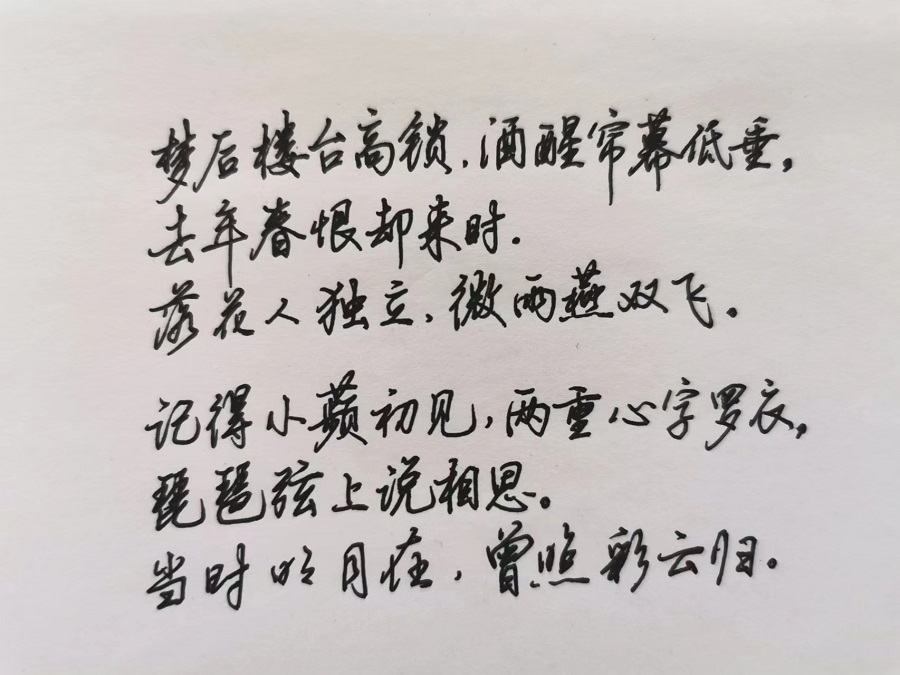 梦后楼台高锁,酒醒帘幕低垂,
去年春恨却来时.
落花人独立,微雨燕双飞。
记得小蘋初见,两重心字罗衣,
琵琶弦上说相思。
当时明月在,曾照彩云归。